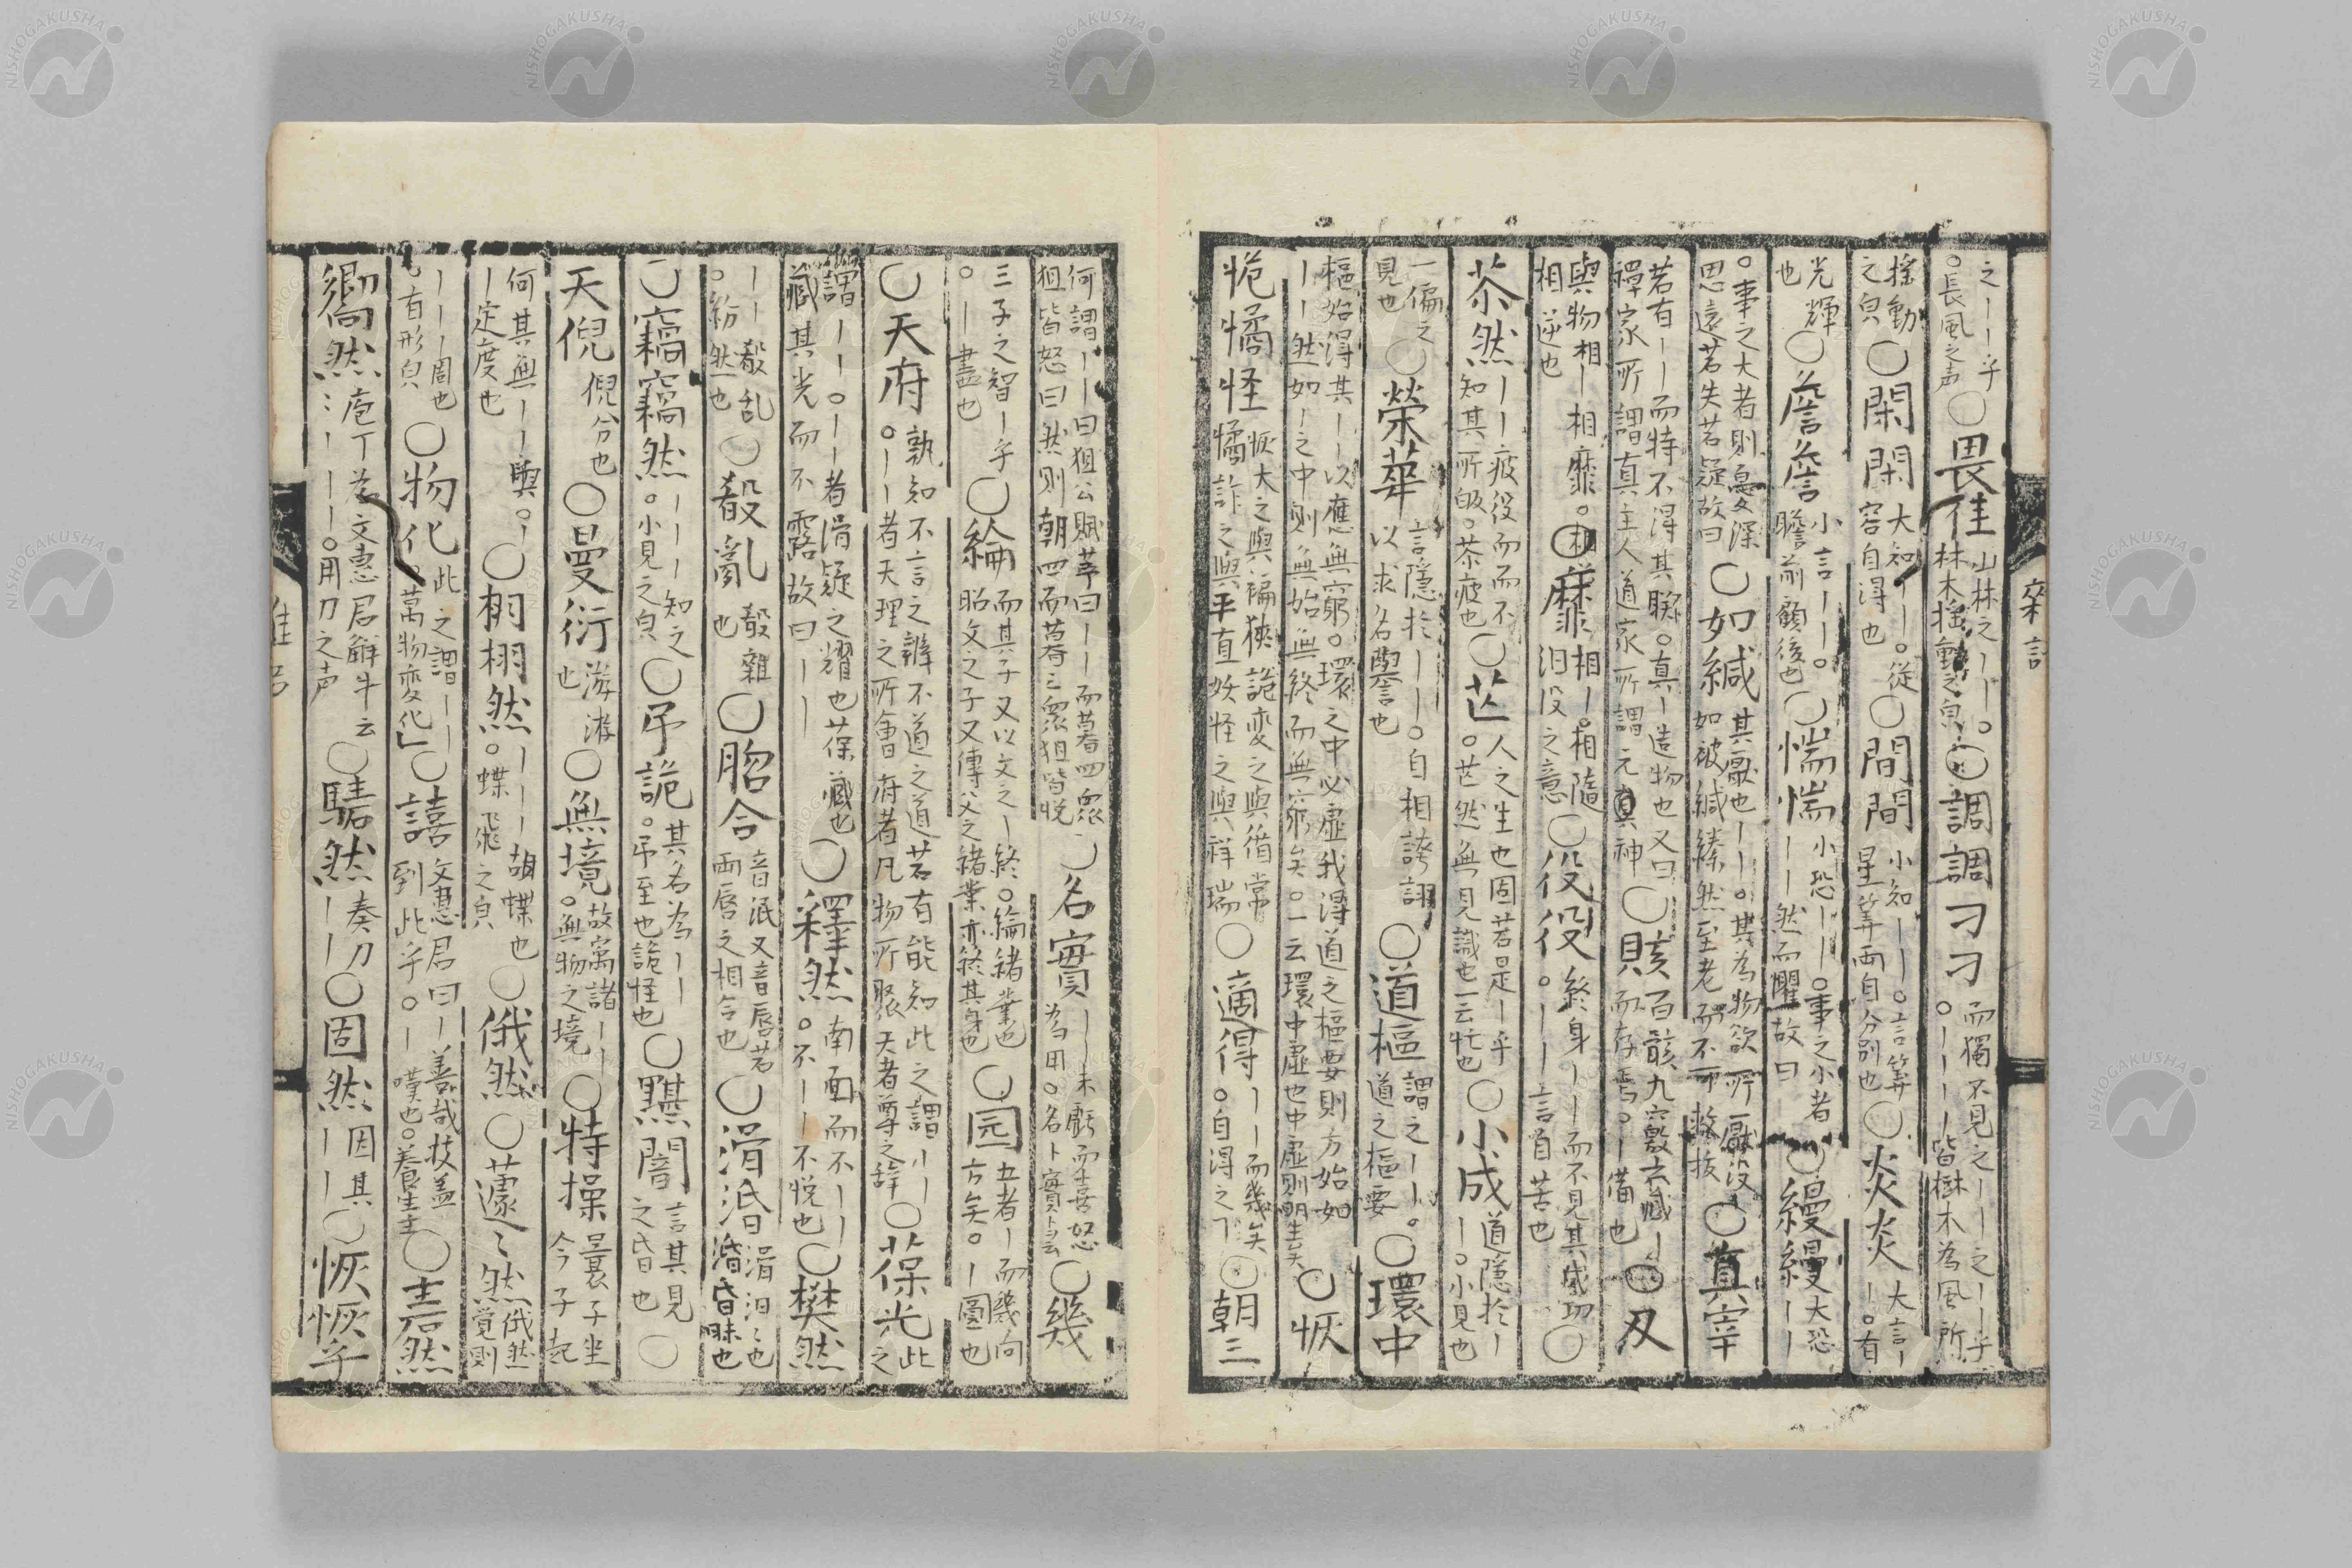 之丨丨乎
○長風之声○畏隹山林之丨丨○
林木揺動之皃○調調刁刁而獨不見之丨丨之丨丨乎
○丨丨丨丨皆樹木為風所
揺動
之皃○閑閑大知丨丨○從
容自得也○間間小知丨丨○言筭
星筭而自分別也○炎炎大言丨
丨○有
光輝
也○詹詹小言丨丨○
瞻前顧後也○惴惴小恐丨丨○事之小者
丨丨然而懼故曰○縵縵大恐
丨丨
○事之大者則憂深
思遠若失若疑故曰○如緘其厭也丨丨○其為物欲所厭没
如被緘縢然至老而不可救拔○真宰
若有丨丨而特不得其朕○真丨造物也又曰
禪家所謂真主人道家所謂元真神○賅百骸九竅六臓丨
而存焉○丨備也○刃
與物相丨相靡○
相逆也靡相丨○相隨
汨没之意○役役終身丨丨而不見其成功
○丨丨言自苦也○
苶然丨丨疲役而而不
知其所皈○苶疲也○芒人之生也固若是丨乎
○芒然無見識也一云忙也○小成道隱於丨
丨○小見也
一偏之
見也○榮華言隱於丨丨○自相誇詡
以求名譽也○道樞謂之丨丨○
道之樞要○環中
樞始得其丨丨以應無窮○環之中必虚我得道之樞要則方始如
丨丨然如丨之中則無始無終而無窮矣○一云環中虚也中虚則明生矣○恢
恑憰怪恢大之與褊狹詭変之與循常
憰詐之與平直妖怪之與祥瑞○適得丨丨而幾矣
○自得之丁○朝三
何謂丨丨曰狙公賦芧曰丨丨而暮四衆
狙皆怒曰然則朝四而暮三衆狙皆悦○名實丨丨未虧而喜怒
為用○名卜實卜云○幾
三子之智丨乎
○丨盡也○綸而其子又以文之丨終○綸緒業也
昭文之子又傳父之緒業亦終其身也○园五者丨而幾向
方矣○丨圓也
○天府孰知不言之辯不道之道若有能知此之謂丨丨
○丨丨者天理之所會府者凡物所聚天者尊之辞○葆光此
之
謂丨丨○丨者滑疑之耀也葆藏也
藏其光而不露故曰丨丨○釋然南面而不丨丨
○不丨丨不悦也○樊然
丨丨殽乱
○紛然也○殽亂殽雜
也○脗合音泯又音唇若
両唇之相合也○滑涽滑汨汨也
涽昏昧也
○竊竊然丨丨丨知之
○小見之皃○弔詭其名為丨丨
○弔至也詭怪也○黮闇言其見
之昏也○
天倪倪分也○曼衍游游
也○無境故寓諸丨丨
○無物之境○特操曩子坐
今子起
何其無丨丨與○丨
丨定度也○栩栩然丨丨丨胡蝶也
○蝶飛之皃○俄然○蘧〻然俄然
覚則
丨丨丨周也
○有形皃○物化此之謂丨丨
○萬物変化○譆文惠君曰丨善哉技盖
到此乎○丨嘆也○養生主○砉然
嚮然庖丁為文惠君解牛云
丨丨丨丨○用刀之声○騞然奏刀
丨丨○固然因其
丨丨○恢恢乎
雜記